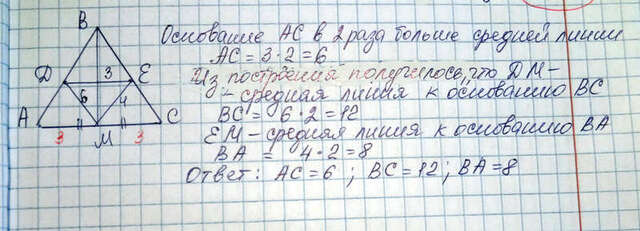 B
D 3 E
6 4
A C
3 M 3
Основание AC в 2 раза больше средней линии
AC = 3·2 = 6
Из построения получилось, что DM-
- средная линия к основанию BC
BC = 6·2 = 12
EM - средная линия к основанию BA
BA = 4·2 = 8
Ответ: AC = 6 ; BC = 12 ; BA = 8